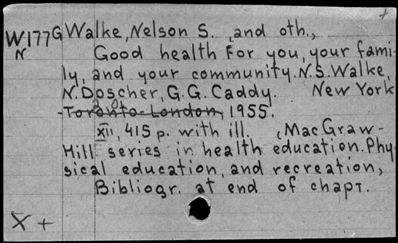 +
W177G Walke, Nelson S. , and oth.,
N
Good health For you, your fami-
ly, and your community. N.S. Walke,
N. Doscher, G.G. Caddy. New York
Toronto London, 1955.
XII, 415 p. with ill. (MacGraw-
Hill series in health education. Phy-
sical education, and recreation,
Bibliogr. at end of chapt.
X +